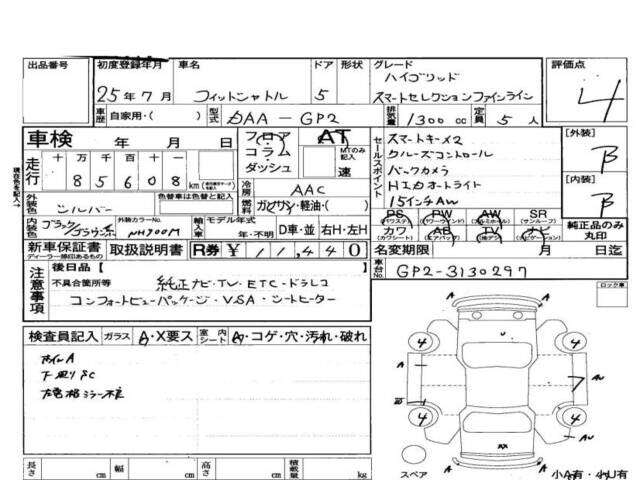 出品番号 初度登録年月 車名 ドア 形状 グレード 評価点
ハイブリッド
25年7月 フィットシャトル 5 スマートセレクションファインライン 4
車歴 自家用・( ) 型式 DAA-GP2 排気量 1300cc 定員 5人
車検 年 月 日 フロア AT セールスポイント スマートキー×2 [外装]
コラム MTのみ記入 クルーズコントロール B
走行 十 万 千 百 十 一 ダッシュ 速 バックカメラ
現在距離を記入→ 85608 km 冷房 AAC HIDオートライト [内装]
燃料 ガソリン・軽油・( ) 15インチAW B
外装色 シルバー 色替車は色替と記入
PS PW AW SR
(パワステ) (パワーウィンド) (アルミホイール) (サンルーフ)
内装色 ブラック 外装カラーNo. NH700M 輸入車 モデル年式 年・不明 D車・並 右H・左H
カワ AB TV ナビ 純正品のみ丸印
(カワシート) (エアバッグ) (ナビゲーション)
新車保証書 取扱説明書 R券 ¥11,440 名変期限 月 日迄
ディーラー捺印あるもの
車台No. GP2-3130297
注意事項 後日品[ ]
不具合箇所等 純正ナビ・TV・ETC・ドラレコ
コンフォートビューパッケージ・VSA・シートヒーター
ロック車
検査員記入 ガラス A・X要ス 室内シート A・コゲ・穴・汚れ・破れ
A
4 4
A AU
7
4 4
A AU
XX
長さ cm 幅 cm 高さ cm 積載量 kg スペア 小A有・小U有